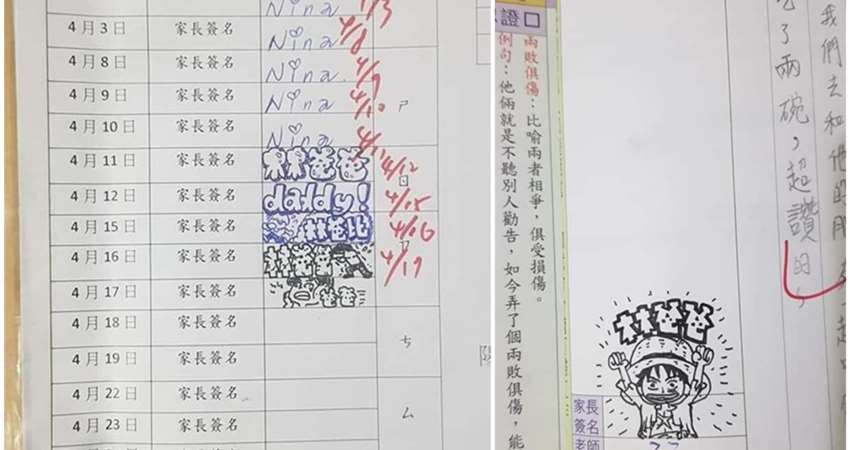 Nina 4/3
4月3日 家長簽名 Nina 4/8
4月8日 家長簽名 Nina 4/9
4月9日 家長簽名 Nina 4/10
ㄕ
4月10日 家長簽名 Nina
4月11日 家長簽名 爸爸 4/12
4月12日 家長簽名 daddy! 4/15
4月15日 家長簽名 林爸比 4/16
4月16日 家長簽名 林爸爸 4/17
4月17日 家長簽名 爸爸
4月18日 家長簽名
ㄘ
4月19日 家長簽名
4月22日 家長簽名
4月23日 家長簽名
ㄙ
我們去和他的
吃了兩碗,超讚的
證口
兩敗俱傷:比喻兩者相爭,俱受損傷。
例句:他倆就是不聽別人勸告,如今弄了個兩敗俱傷,能
林爸爸
家長
簽名
老師